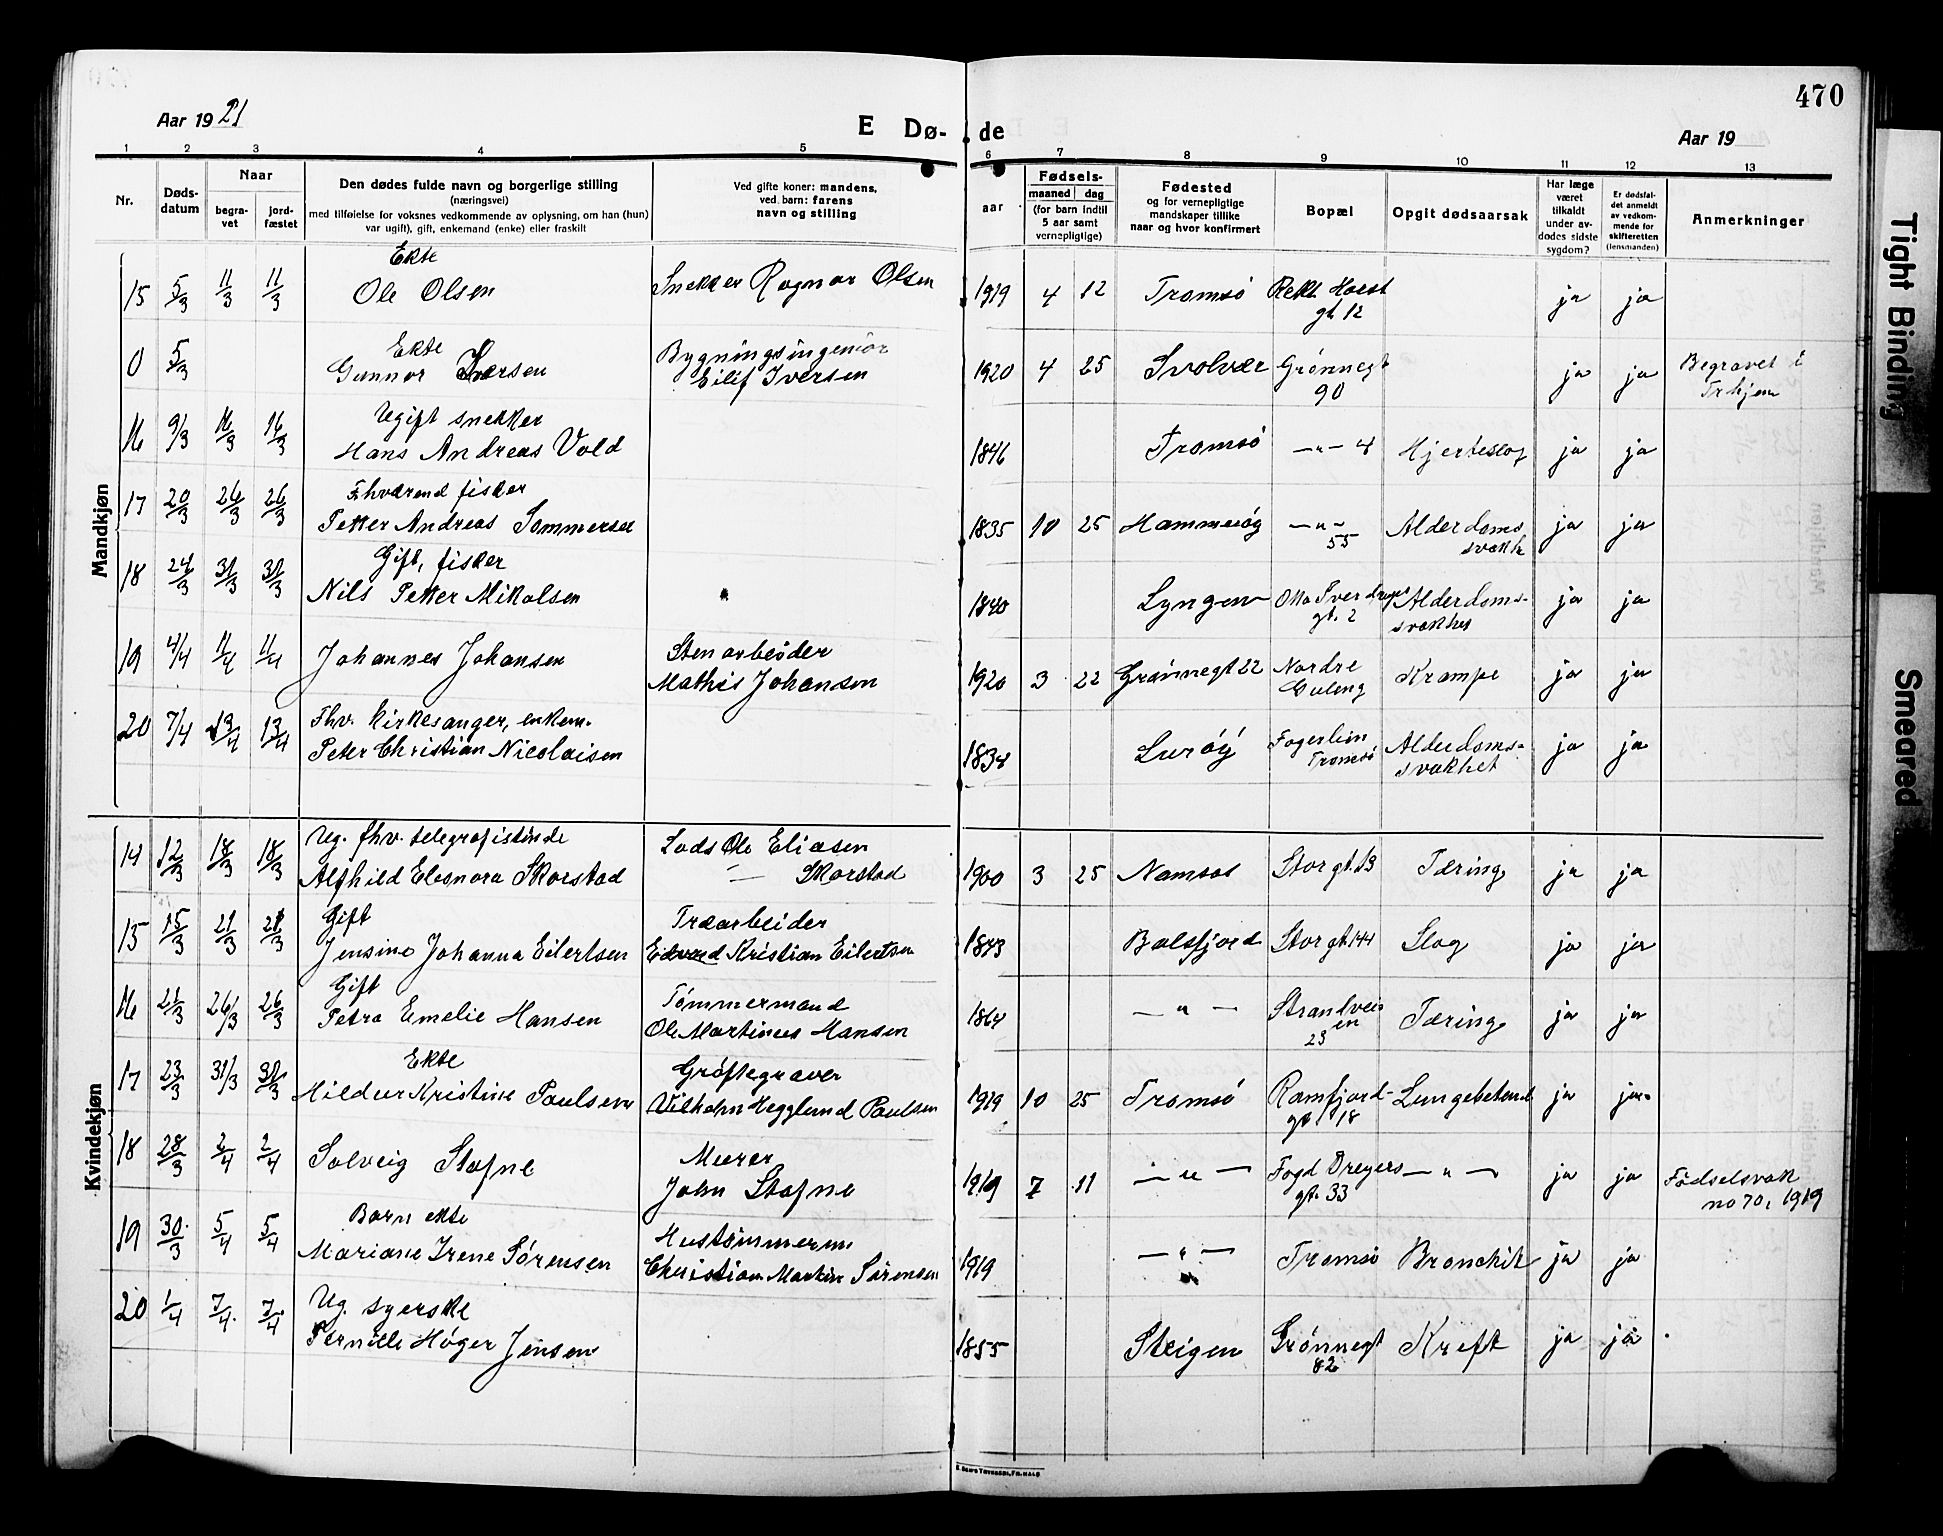 470
Aar 1921
E Dø-
de
Aar 19
1 2 3 4 5 6 7 8 9 10 11 12 13
Nr.
Døds-
datum
Naar
begra-
vet
jord-
fæstet
Den dødes fulde navn og borgerlige stilling
(næringsvei)
med tilføielse for voksnes vedkommende av oplysning, om han (hun)
var ugift), gift, enkemand (enke) eller fraskilt
Ved gifte koner: mandens,
ved. barn: farens
navn og stilling
aar
Fødsels-
maaned dag
(for barn indtil
5 aar samt
vernepligtige)
Fødested
og for vernepligtige
mandskaper tillike
naar og hvor konfirmert
Bopæl
Opgit dødsaarsak
Har læge
været
tilkaldt
under av-
dødes sidste
sygdom?
Er dødsfal-
det anmeldt
av vedkom-
mende for
skifteretten
(lensmanden)
Anmerkninger
Mandkjøn
Ekte
15 5/3 11/3 11/3 Ole Olsen Snekker Ragnar Olsen 1919 4 12 Tromsø Rekt. Horst ja ja
gt. 12
Ekte Bygningsingeniør
0 5/3 Gunnar Iversen Eilif Iversen 1920 4 25 Svolvær Grønnegt ja ja Begravet i
90 Trhjem
Ugift snekker
16 9/3 16/3 16/3 Hans Andreas Vold 1846 Tromsø —"— 4 Hjerteslag ja ja
Fhværend fisker
17 20/3 26/3 26/3 Petter Andreas Sommersel 1835 10 25 Hammerøy —"— Alderdoms ja ja
55 svakh
Gift, fisker
18 24/3 31/3 31/3 Nils Petter Mikalsen 1840 Lyngen Otto Sverdrups Alderdoms- ja ja
gt. 2 svakhet
19 4/4 11/4 11/4 Johannes Johansen Stenarbeider 1920 3 22 Grønnegt 22 Nordre Krampe ja ja
Mathis Johansen
20 7/4 13/4 13/4 Fhv. kirkesanger, enkem. 1834 Lurøy Fagerheim Alderdoms- ja ja
Peter Christian Nicolaisen Tromsø svakhet
Kvindekjøn
14 12/3 18/3 18/3 Ug. fhv. telegrafistinde Lods Ole Eliasen
Alfhild Eleonora Skorstad — Skorstad 1900 3 25 Namsos Storgt. 13 Tæring ja ja
15 15/3 21/3 21/3 Gift Træarbeider
Jensine Johanna Eilertsen Edvard Kristian Eilertsen 1843 Balsfjord Storgt 144 Slag ja ja
16 21/3 26/3 26/3 Gift Tømmermand
Petra Emelie Hansen Ole Martinus Hansen 1864 — " — Strandvei Tæring ja ja
en
23
17 23/3 31/3 31/3 Ekte Grøftegraver
Hildur Kristine Paulsen Vilhelm Hegglund Paulsen 1919 10 25 Tromsø Ramfjord- Lungebetend ja ja
gt 18
18 28/3 2/4 2/4 Solveig Stafne Murer
John Stafne 1919 7 11 — " — Fogd Dreyers — " — ja ja Fødselsvak
gt. 33 no 70, 1919
19 30/3 5/4 5/4 Barn ekte Hustømmerm
Mariane Irene Sørensen Christian Martin Sørensen 1919 — " — Tromsø Bronchit ja ja
20 1/4 7/4 7/4 Ug. syerske
Pernille Høger Jensen 1855 Steigen Grønnegt Kreft ja ja
82
Tight Binding
Smeared